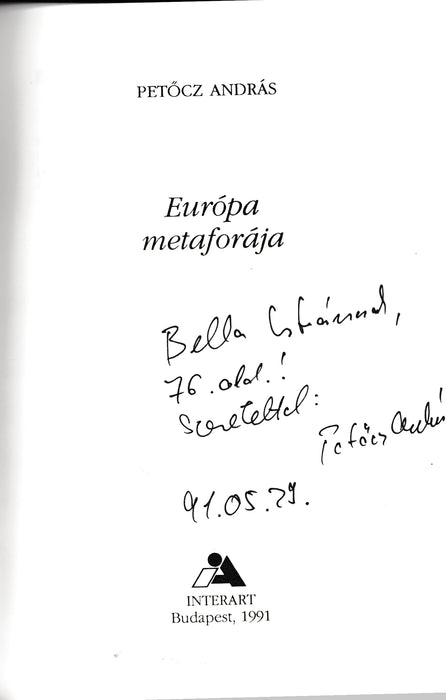 PETŐCZ ANDRÁS
Európa
metaforája
Bella Istvánnak,
76. old.!
Szeretettel:
Petőcz András
91.05.29.
INTERART
Budapest, 1991